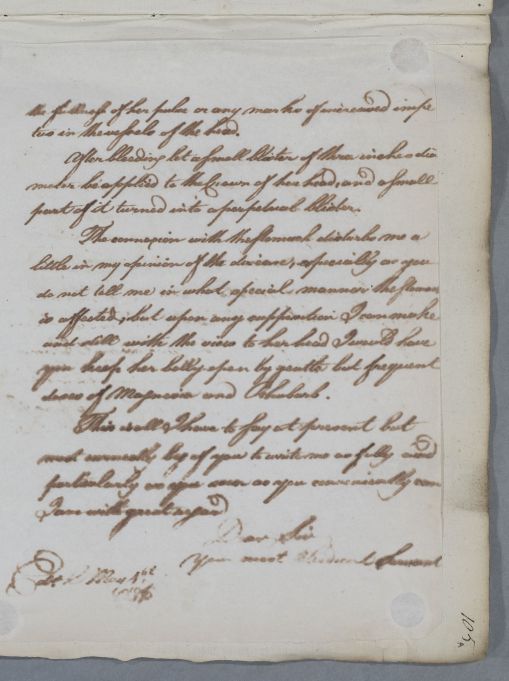 the fullness of her pulse or any marks of increased impe
tus in the vessels of the head.
After bleeding let a small blister of three inches dia
meter be applied to the Crown of her head, and a small
part of it turned into a perpetual blister.
The connexion with the stomach disturbs me a
little in my opinion of the disease, especially as you
do not tell me in what special manner the stomac
is affected, but upon any supposition I can make
and still with the view to her head I would have
you keep her belly open by gentle but frequent
doses of Magnesia and Rhubarb.
This is all I have to say at present but
most earnestly beg of you to write me as fully and
particularly as you can as you conveniently can
I am with great regard
Dear Sir
Your most Obedient Servant
May 1st
105